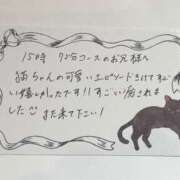 15時 75分コースのお兄様へ
猫ちゃんの可愛いエピソードきけてすご
い嬉しかったです!!すごい癒されま
した◡̈ また来て下さい!